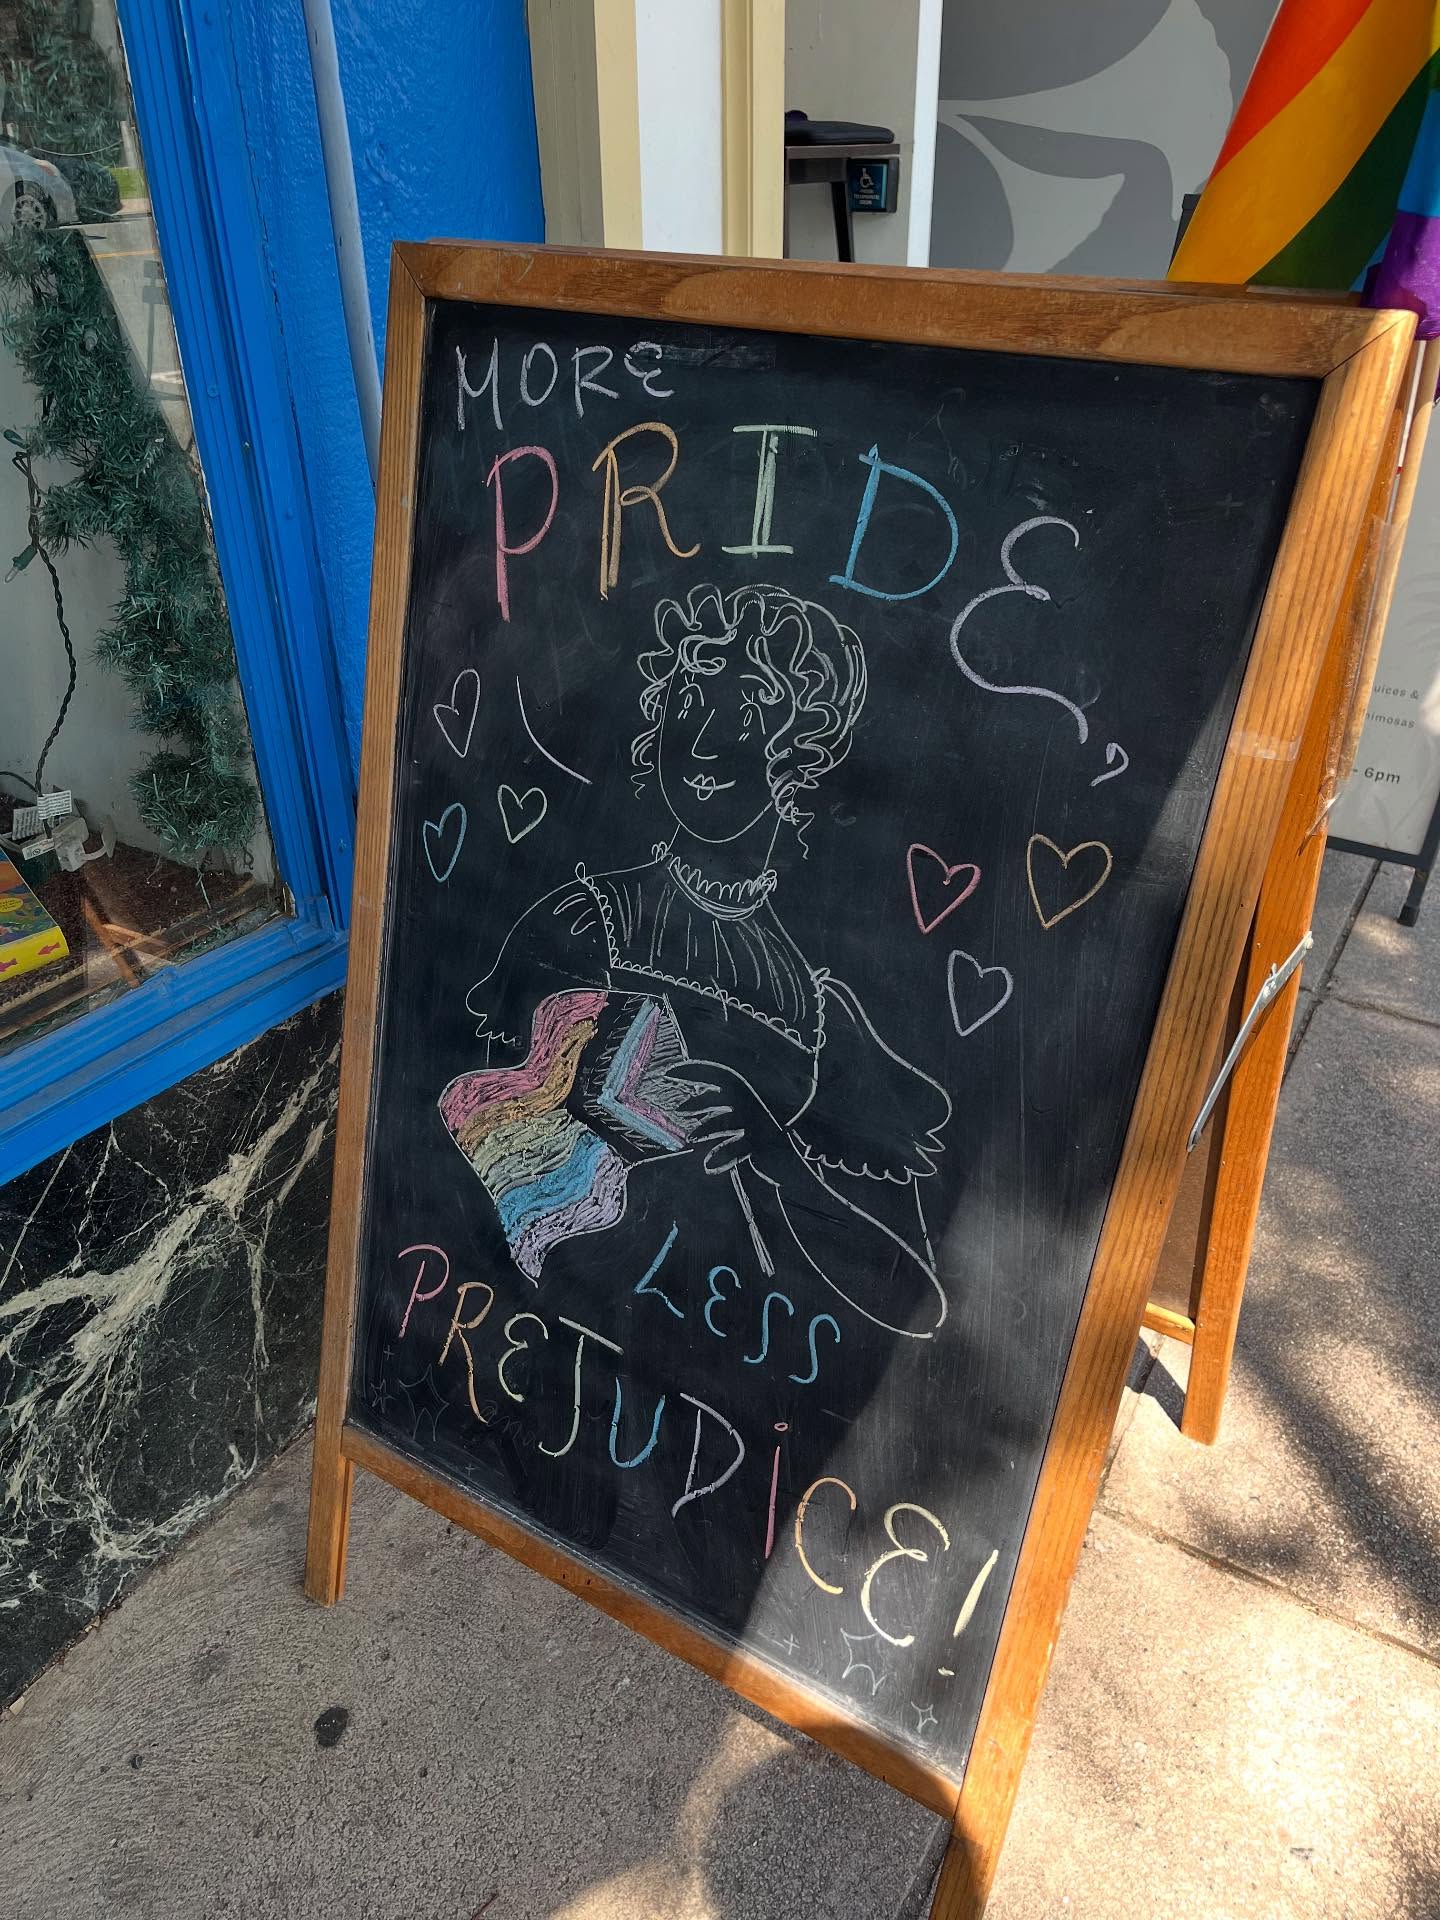 MORE
PRIDE,
LESS
PREJUDiCE!
uices &
mimosas
- 6pm